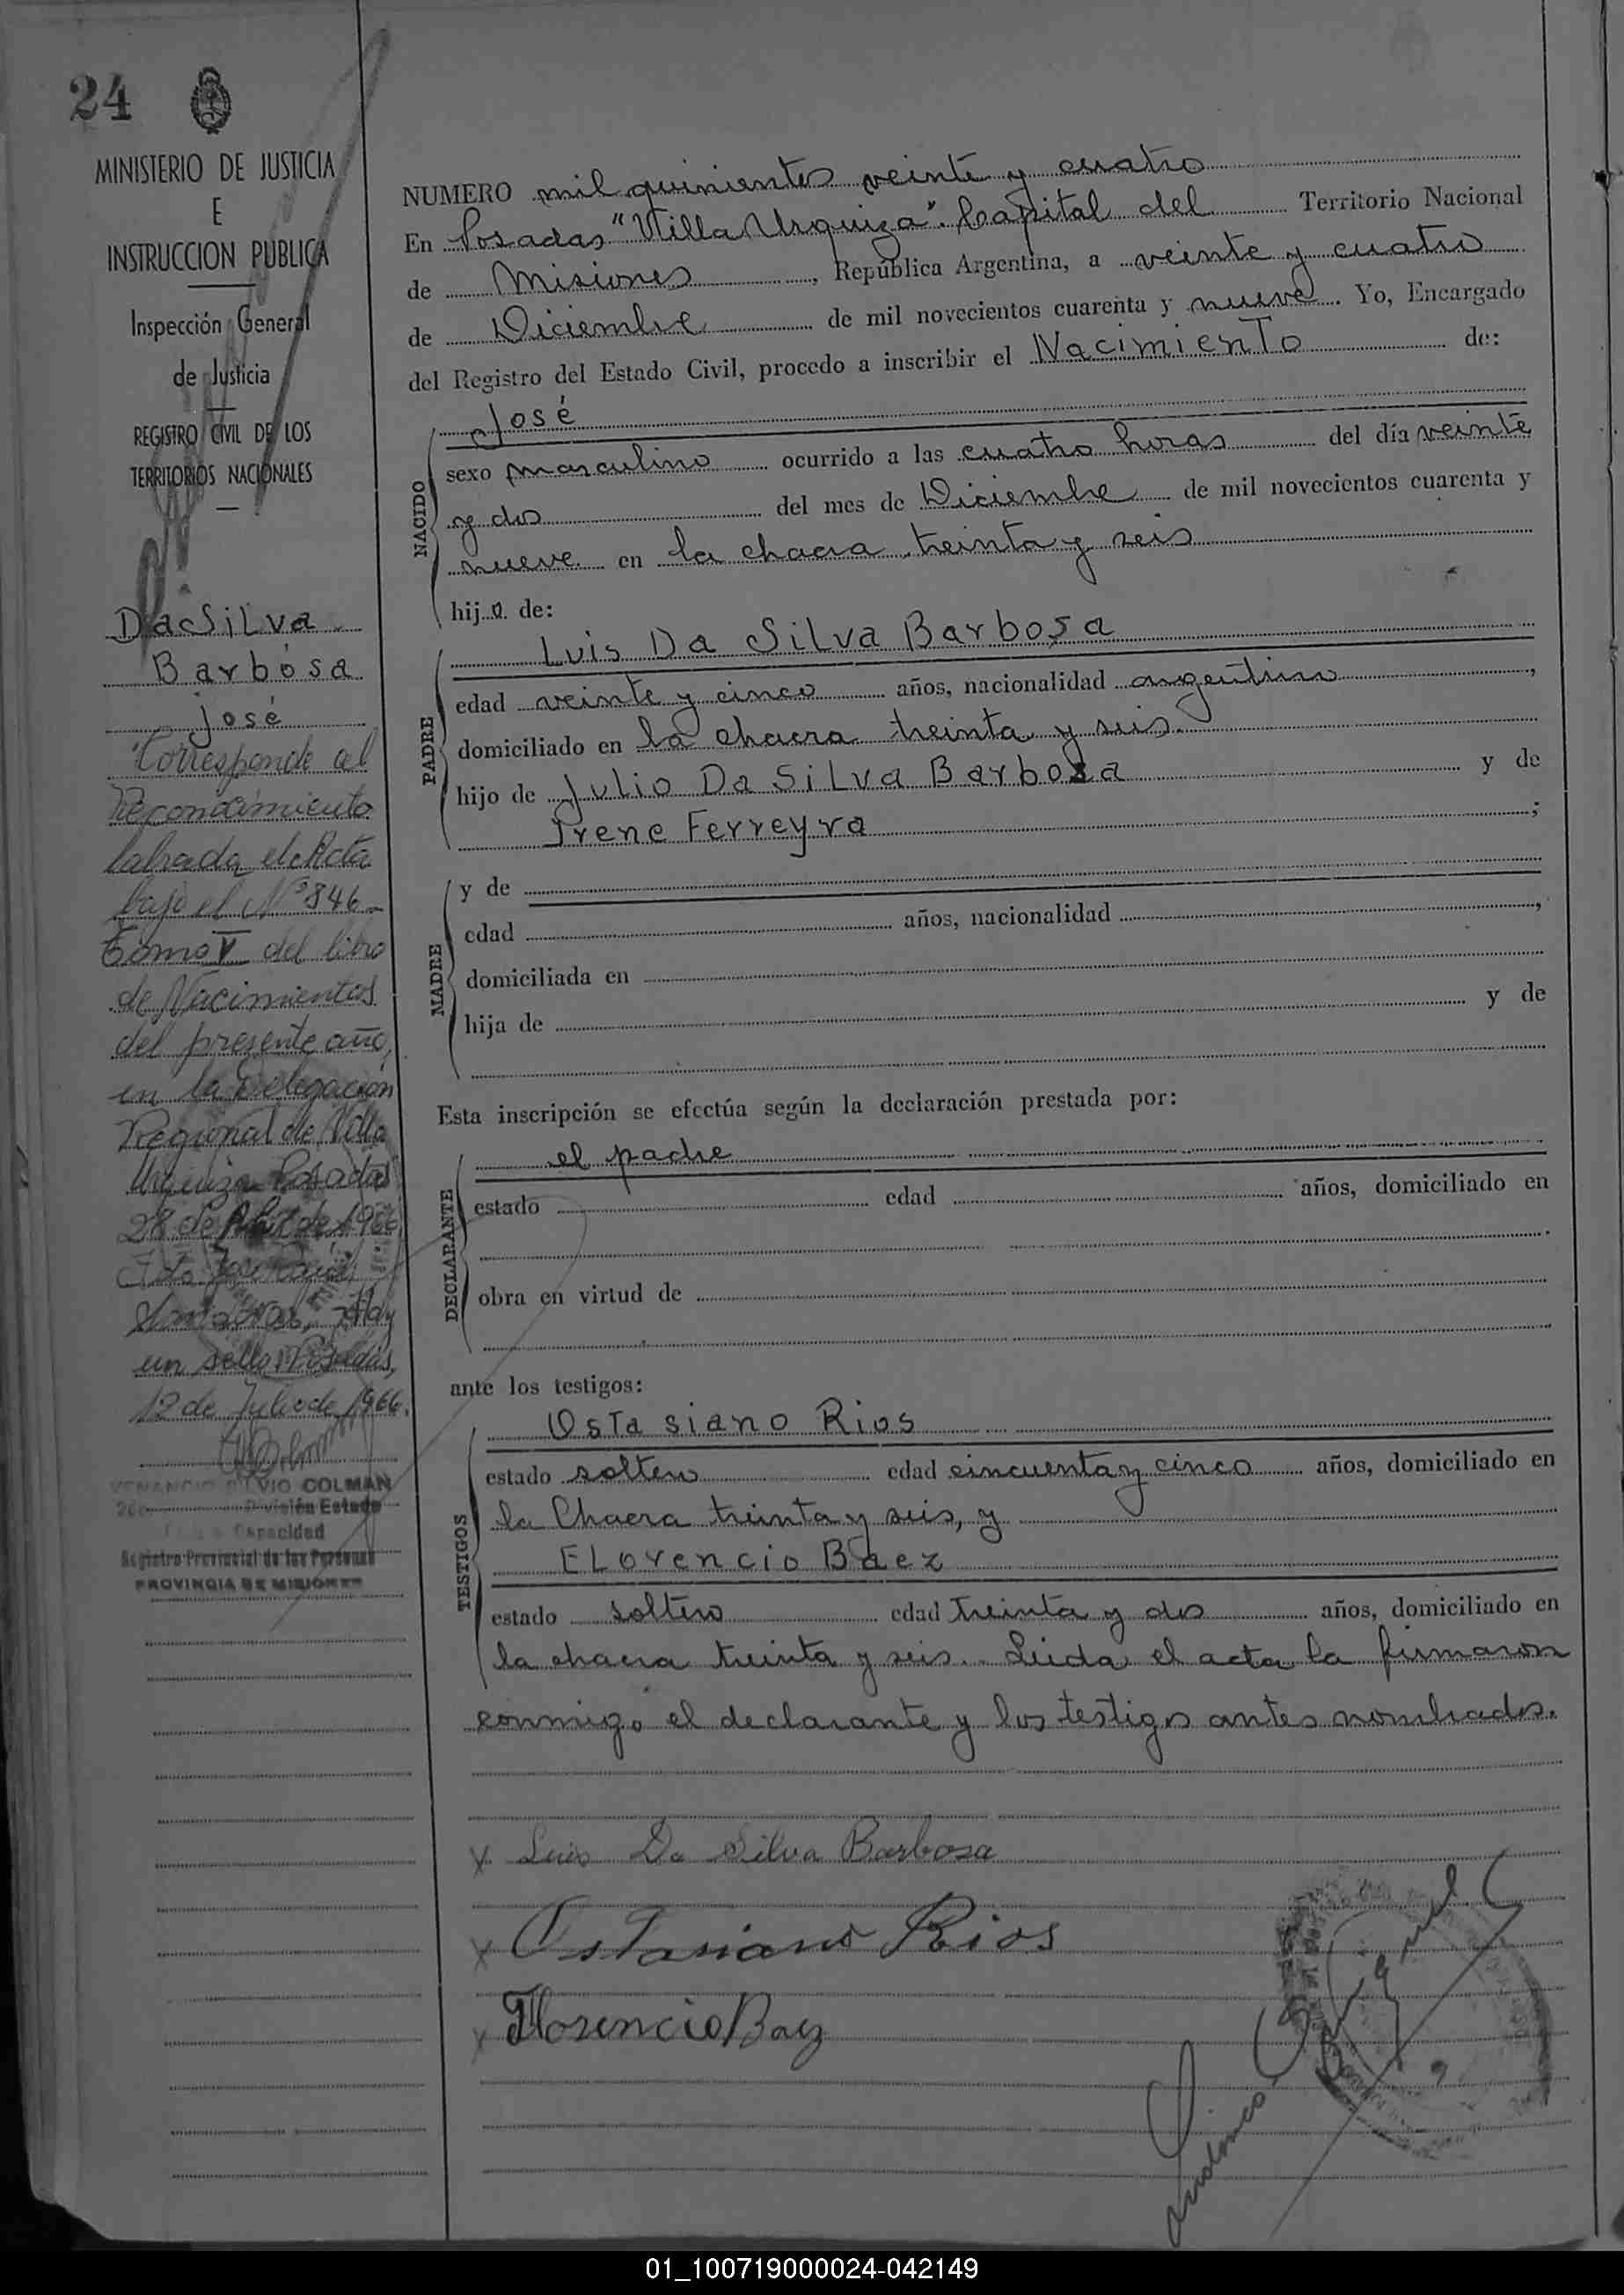 24
MINISTERIO DE JUSTICIA
E
INSTRUCCION PUBLICA
Inspección General
de Justicia
REGISTRO CIVIL DE LOS
TERRITORIOS NACIONALES
Da Silva
Barbosa
José
"Corresponde al
Reconocimiento
labrada el Acta
bajo el Nº 846-
Tomo V del libro
de Nacimientos
del presente año,
en la Delegación
Regional de Villa
Urquiza Posadas
28 de Abril de 1966
un sello. Posadas,
12 de Julio de 1966.
VENANCIO SILVIO COLMAN
División Estado
Capacidad
Registro Provincial de las Personas
PROVINCIA DE MISIONES
NUMERO mil quinientos veinte y cuatro
En Posadas "Villa Urquiza". Capital del Territorio Nacional
de Misiones, República Argentina, a veinte y cuatro
de Diciembre de mil novecientos cuarenta y nueve. Yo, Encargado
del Registro del Estado Civil, procedo a inscribir el Nacimiento de:
José
NACIDO
sexo masculino ocurrido a las cuatro horas del día veinte
y dos del mes de Diciembre de mil novecientos cuarenta y
nueve en la chacra treinta y seis
hijo de:
Luis Da Silva Barbosa
PADRE
edad veinte y cinco años, nacionalidad argentino,
domiciliado en la chacra treinta y seis.
hijo de Julio Da Silva Barbosa y de
Irene Ferreyra;
y de
MADRE
edad años, nacionalidad,
domiciliada en
hija de y de
Esta inscripción se efectúa según la declaración prestada por:
el padre
DECLARANTE
estado edad años, domiciliado en
obra en virtud de
ante los testigos:
Ostasiano Rios
TESTIGOS
estado soltero edad cincuenta y cinco años, domiciliado en
la Chacra treinta y seis, y
FLorencio Baez
estado soltero edad treinta y dos años, domiciliado en
la chacra treinta y seis.. Leida el acta la firmaron
conmigo el declarante y los testigos antes nombrados.
x Luis Da Silva Barbosa
x Ostasiano Rios
x Florencio Baez
01_100719000024-042149